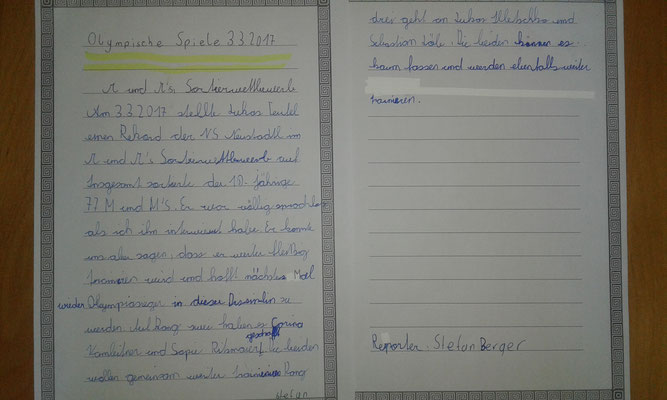 Olympische Spiele 3.3.2017
M und M's Sortierwettbewerb
Am 3.3.2017 stellte Lukas Teufel
einen Rekord der NS Neustadtl im
M und M's Sortierwettbewerb auf
Insgesamt sortierte der 10. jährige
77 M und M's. Er war völlig sprachlos
als ich ihn interviewt habe. Er konnte
uns aber sagen, dass er weiter fleißig
trainieren wird und hofft nächstes Mal
wieder Olympiasieger in dieser Disziplin zu
werden. Auf Rang zwei haben es Corina
geschafft
und Sophie Die beiden
wollen gemeinsam weiter trainieren Rang
Stefan
drei geht an Lukas und
Sebastian Die beiden können es
kaum fassen und werden ebenfalls weiter
trainieren.
Reporter: Stefan Berger